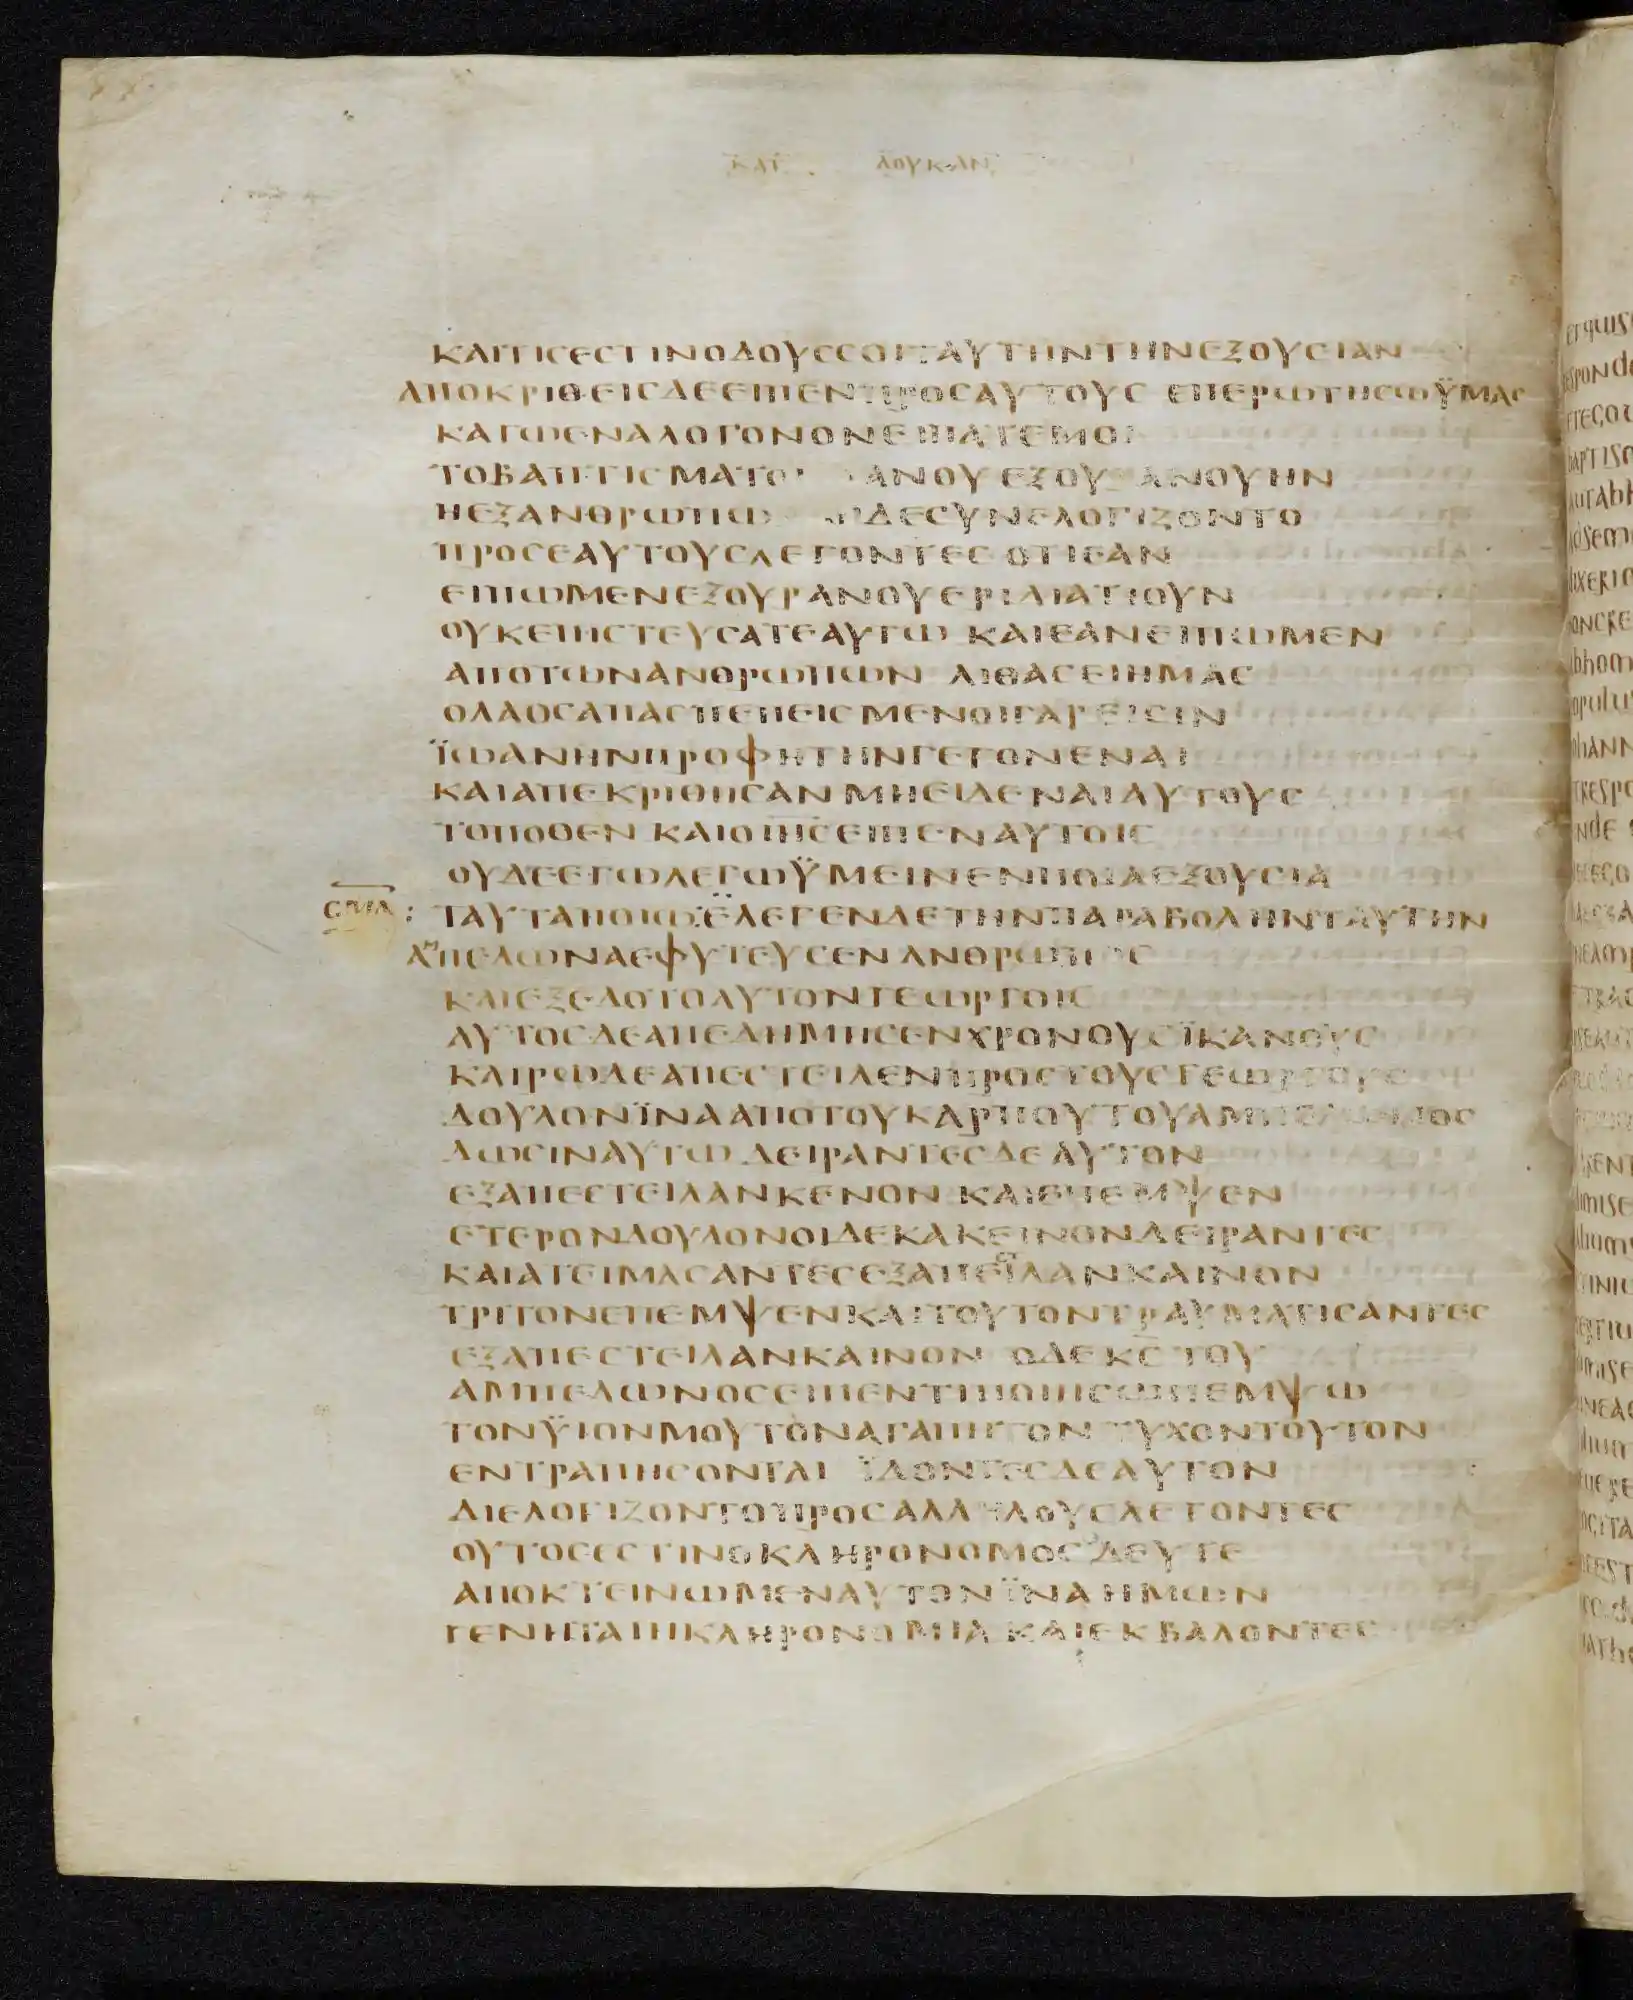 ΚΑΤ ΛΟΥΚΑΝ
ΚΑΙΤΙϹΕϹΤΙΝΟΔΟΥϹϹΟΙΤΑΥΤΗΝΤΗΝΕΞΟΥϹΙΑΝ
ΑΠΟΚΡΙΘΕΙϹΔΕΕΙΠΕΝΠΡΟϹΑΥΤΟΥϹ ΕΠΕΡΩΤΗϹΩΫΜΑϹ
ΚΑΓΩΕΝΑΛΟΓΟΝΟΝΕΙΠΑΤΕΜΟΙ
ΤΟΒΑΠΤΙϹΜΑΤΟ ΑΝΟΥ ΕΞΟΥ ΑΝΟΥΗΝ
ΗΕΞΑΝΘΡΩΠΩ ΔΕϹΥΝΕΛΟΓΙΖΟΝΤΟ
ΠΡΟϹΕΑΥΤΟΥϹΛΕΓΟΝΤΕϹ ΟΤΙΕΑΝ
ΕΙΠΩΜΕΝΕΞΟΥΡΑΝΟΥΕΡΙΔΙΑΤΙΟΥΝ
ΟΥΚΕΠΙϹΤΕΥϹΑΤΕΑΥΤΩ ΚΑΙΕΑΝΕΙΠΩΜΕΝ
ΑΠΟΤΩΝΑΝΘΡΩΠΩΝ ΛΙΘΑϹΕΙΗΜΑϹ
ΟΛΑΟϹΑΠΑϹΠΕΠΕΙϹΜΕΝΟΙΓΑΡΕΙϹΙΝ
ΪΩΑΝΗΝΠΡΟΦΗΤΗΝΓΕΓΟΝΕΝΑΙ
ΚΑΙΑΠΕΚΡΙΘΗϹΑΝ ΜΗΕΙΔΕΝΑΙΑΥΤΟΥϹ
ΤΟΠΟΘΕΝ ΚΑΙΟΙΗϹΕΙΠΕΝΑΥΤΟΙϹ
ΟΥΔΕΕΓΩΛΕΓΩΫΜΕΙΝΕΝΠΟΙΑΕΞΟΥϹΙΑ
ϹΜΑ : ΤΑΥΤΑΠΟΙΩ:ΕΛΕΓΕΝΔΕΤΗΝΠΑΡΑΒΟΛΗΝΤΑΥΤΗΝ
ΑΜΠΕΛΩΝΑΕΦΥΤΕΥϹΕΝ ΑΝΘΡΩΠΟϹ
ΚΑΙΕΞΕΔΟΤΟΑΥΤΟΝΓΕΩΡΓΟΙϹ
ΑΥΤΟϹΔΕΑΠΕΔΗΜΗϹΕΝΧΡΟΝΟΥϹΪΚΑΝΟΥϹ
ΚΑΙΡΩΔΕΑΠΕϹΤΕΙΛΕΝΠΡΟϹΤΟΥϹΓΕΩΡΓΟΥϹ
ΔΟΥΛΟΝΪΝΑΑΠΟΤΟΥΚΑΡΠΟΥΤΟΥΑΜΠΕΛΩΝΟϹ
ΔΩϹΙΝΑΥΤΩ ΔΕΙΡΑΝΤΕϹΔΕΑΥΤΟΝ
ΕΞΑΠΕϹΤΕΙΛΑΝΚΕΝΟΝ ΚΑΙΕΠΕΜΨΕΝ
ΕΤΕΡΟΝΔΟΥΛΟΝΟΙΔΕΚΑΚΕΙΝΟΝΔΕΙΡΑΝΤΕϹ
ΚΑΙΑΤΕΙΜΑϹΑΝΤΕϹΕΞΑΠΕϹΤΙΛΑΝΚΑΙΝΟΝ
ΤΡΙΤΟΝΕΠΕΜΨΕΝΚΑΙΤΟΥΤΟΝΤΡΑΥΜΑΤΙϹΑΝΤΕϹ
ΕΞΑΠΕϹΤΕΙΛΑΝΚΑΙΝΟΝ ΟΔΕΚϹΤΟΥ
ΑΜΠΕΛΩΝΟϹΕΙΠΕΝΤΙΠΟΙΗϹΩΠΕΜΨΩ
ΤΟΝΫΙΟΝΜΟΥΤΟΝΑΓΑΠΗΤΟΝ ΤΥΧΟΝΤΟΥΤΟΝ
ΕΝΤΡΑΠΗϹΟΝΤΑΙ ΪΔΟΝΤΕϹΔΕΑΥΤΟΝ
ΔΙΕΛΟΓΙΖΟΝΤΟΠΡΟϹΑΛΛΗΛΟΥϹΛΕΓΟΝΤΕϹ
ΟΥΤΟϹΕϹΤΙΝΟΚΛΗΡΟΝΟΜΟϹ ΔΕΥΤΕ
ΑΠΟΚΤΕΙΝΩΜΕΝΑΥΤΟΝΪΝΑΗΜΩΝ
ΓΕΝΗΤΑΙΗΚΛΗΡΟΝΟΜΙΑ ΚΑΙΕΚΒΑΛΟΝΤΕϹ